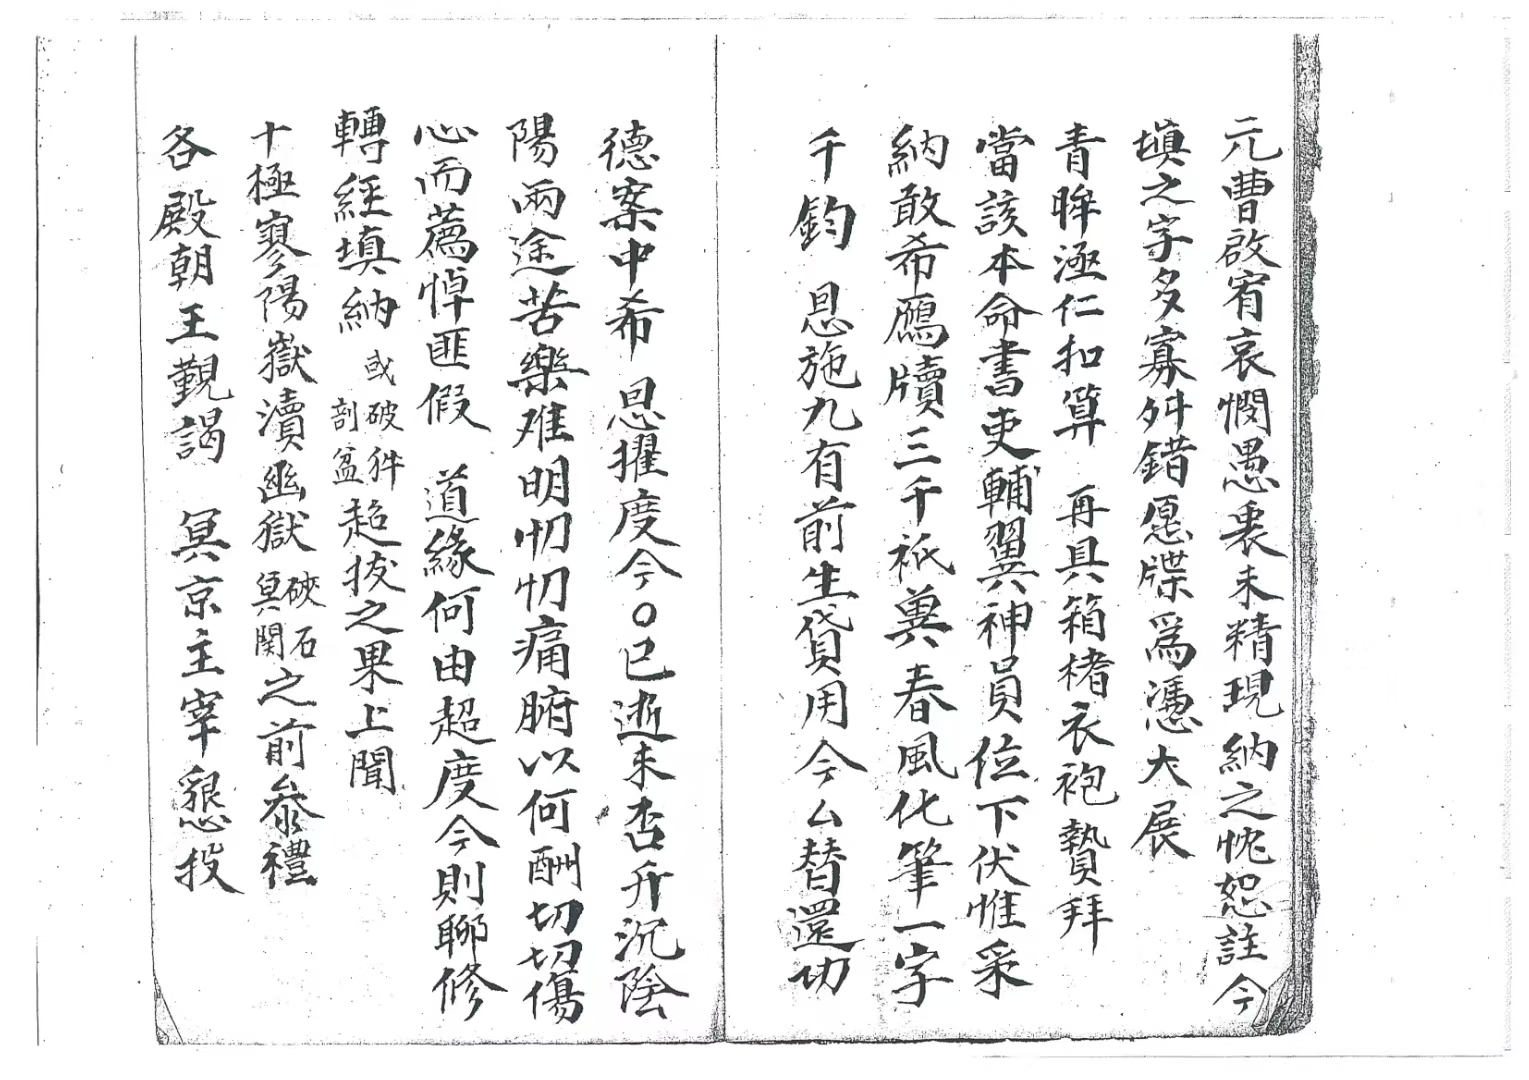 元曹啟宥哀憫愚衷未精現納之愧恕註今
填之字多寡舛錯愿牒爲憑大展
青眸亟仁扣算 再具箱楮衣袍贄拜
當該本命書吏輔翼神員位下伏惟采
納敢希鴈牘三千祇冀春風化筆一字
千鈞 恩施九有前生貸用今厶替還功
德案中希 恩擢度今○已逝未否升沉陰
陽兩途苦樂难明忉忉痛腑以何酬切切傷
心而薦悼匪假 道緣何由超度今則聊修
轉經填納或破件剖盆超抜之果上聞
十極寥陽嶽瀆幽獄硤石冥関之前叅禮
各殿朝王觐謁 冥京主宰懇投